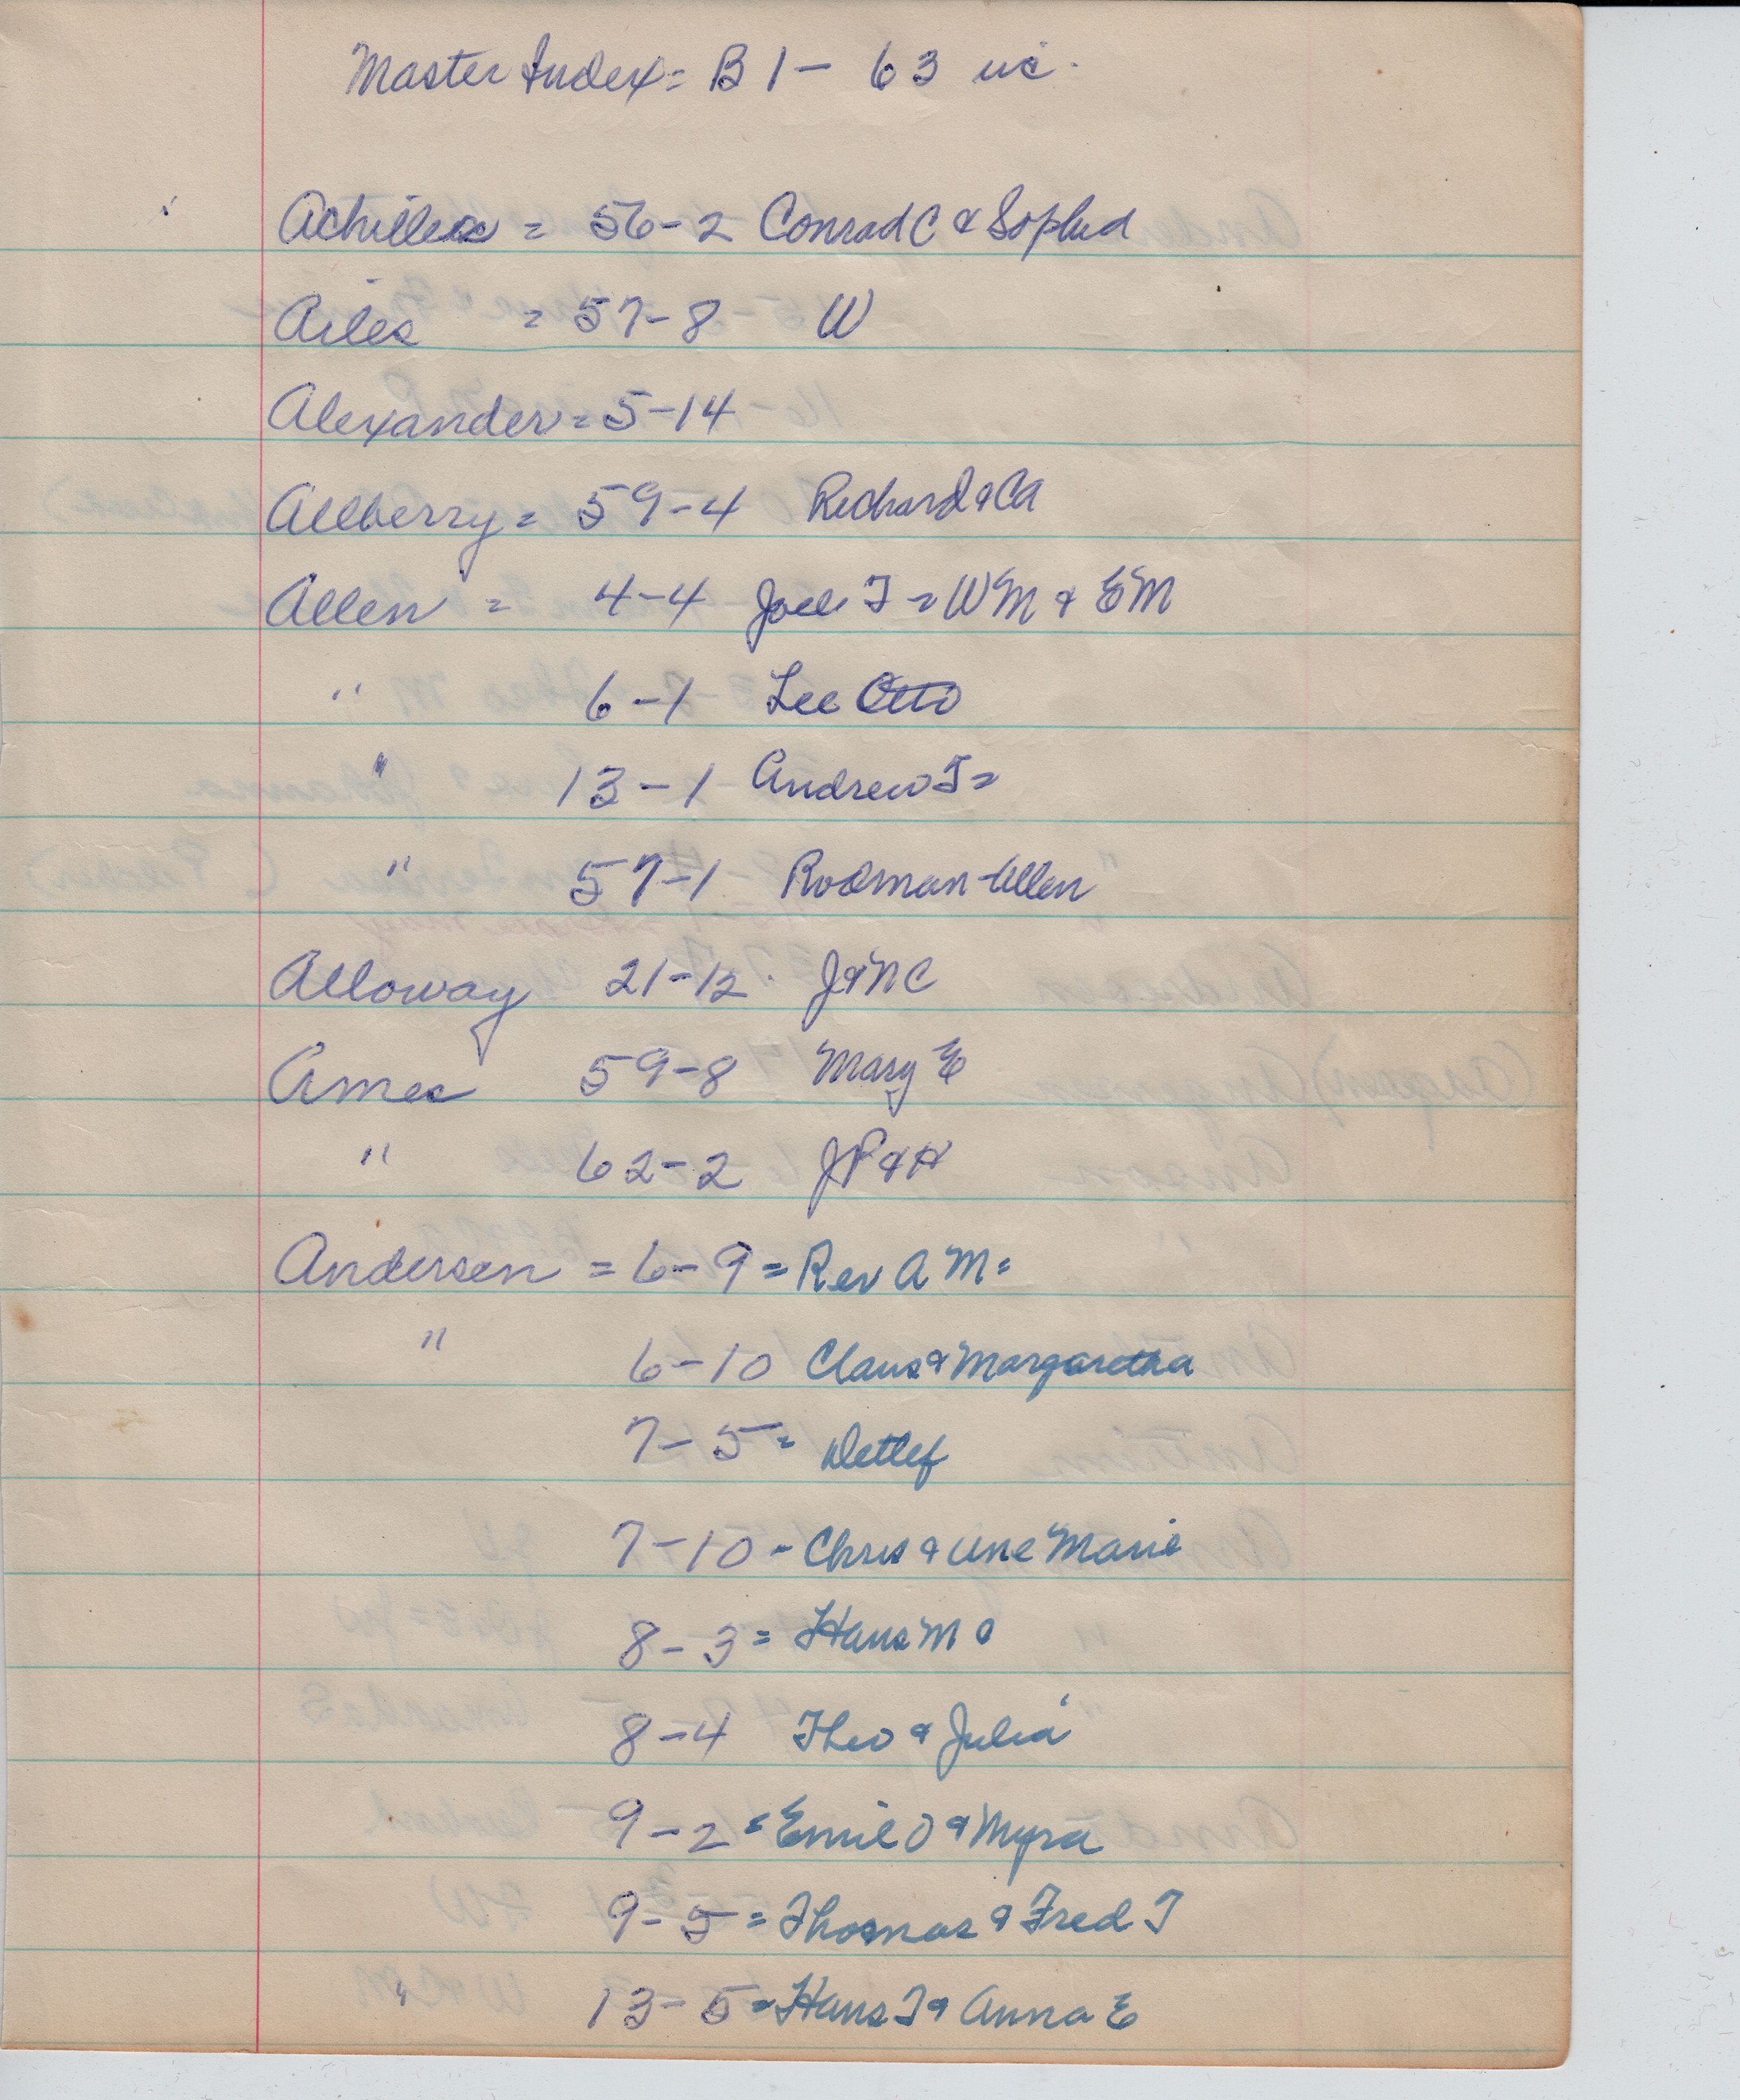 Master Index = B 1 - 63 inc.
Achilles = 56-2 Conrad C & Sophia
Ailes = 57-8 W
Alexander = 5-14
Allberry = 59-4 Richard & CA
Allen = 4-4 Joel T = WM & EM
" 6-1 Lee Otto
" 13-1 Andrew T =
" 57-1 Rodman-Allen
Alloway 21-12 J & NC
Ames 59-8 Mary E
" 62-2 JP & H
Andersen = 6-9 = Rev A M =
" 6-10 Claus & Margaretha
7-5 = Detlef
7-10 - Chris & Ane Marie
8-3 = Hans M
8-4 Theo & Julia
9-2 = Emil O & Myra
9-5 = Thomas & Fred T
" 13-5 = Hans T & Anna E